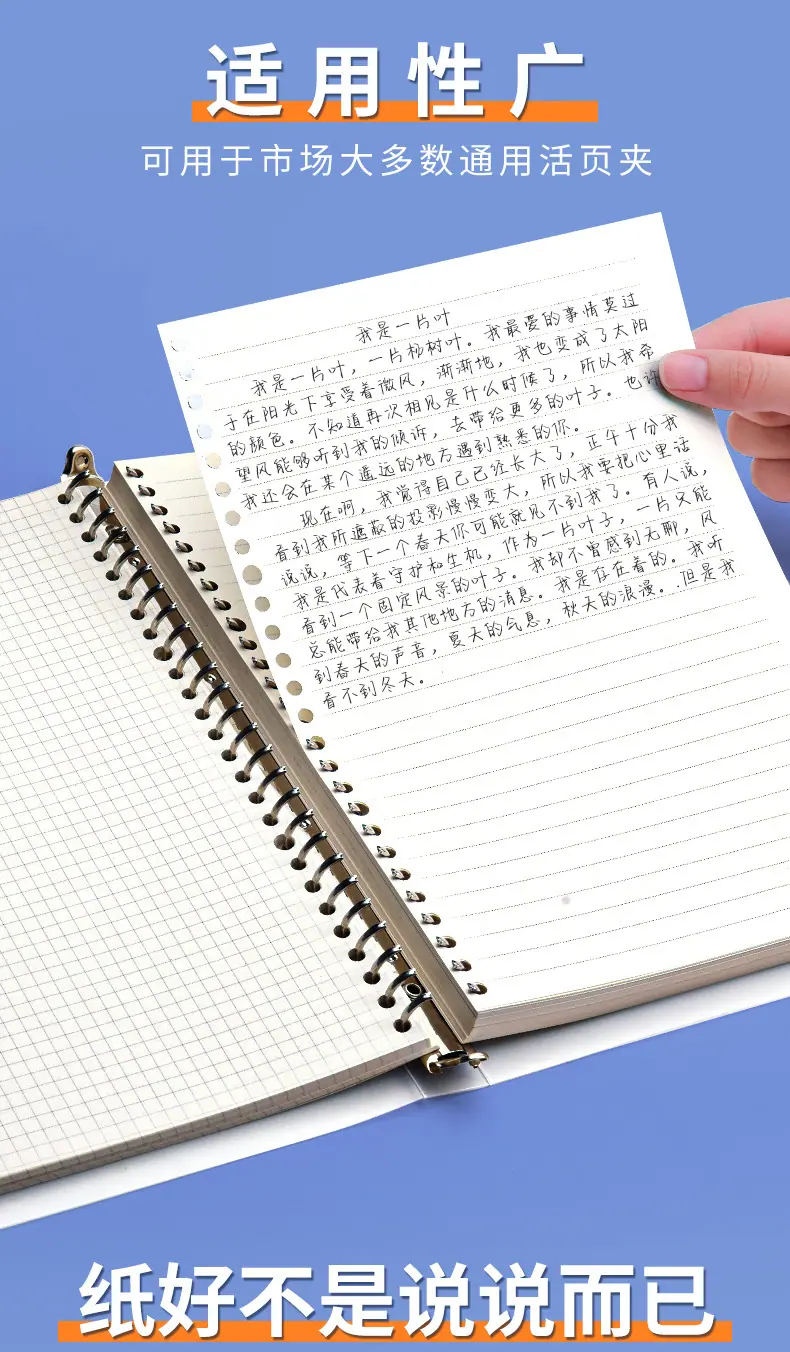 适用性广
可用于市场大多数通用活页夹
我是一片叶
我是一片叶，一片杉树叶。我最爱的事情莫过
于在阳光下享受着微风，渐渐地，我也变成了太阳
的颜色。不知道再次相见是什么时候了，所以我希
望风能够听到我的倾诉，去带给更多的叶子。也许
我还会在某个遥远的地方遇到熟悉的你。
现在啊，我觉得自己已经长大了，正午十分我
看到我所遮蔽的投影慢慢变大，所以我要把心里话
说说，等下一个春天你可能就见不到我了。有人说，
我是代表着守护和生机，作为一片叶子，一片只能
看到一个固定风景的叶子。我却不曾感到无聊，风
总能带给我其他地方的消息。我是存在着的。我听
到春天的声音，夏天的气息，秋天的浪漫。但是我
看不到冬天。
纸好不是说说而已